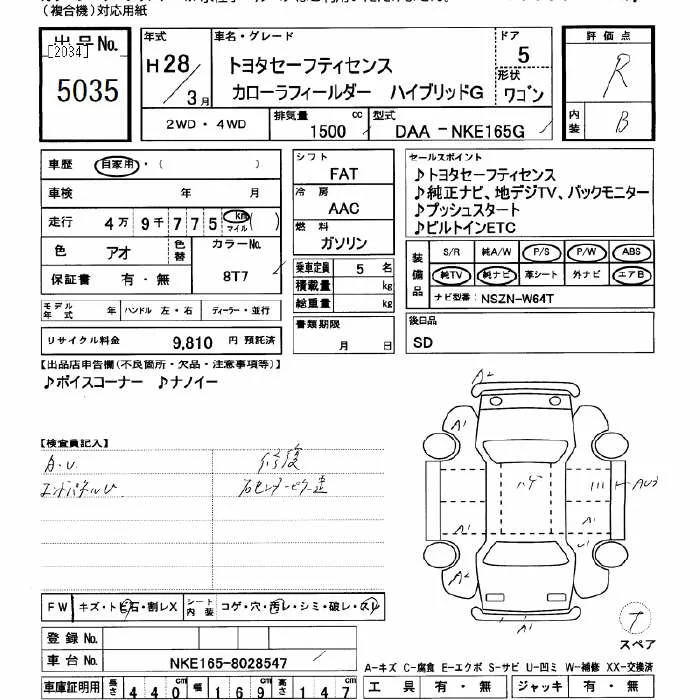 (複合機)対応用紙
出品No.
[2034]
5035
年式
H28/3月
車名・グレード
トヨタセーフティセンス
カローラフィールダー ハイブリッドG
ドア
5
形状
ワゴン
評価点
R
内装
B
2WD・4WD
排気量
1500cc
型式
DAA-NKE165G
車歴 自家用・( )
車検 年 月
走行 4万9千775 km マイル ( )
色 アオ
色替
カラーNo.
8T7
保証書 有・無
モデル年式 年
ハンドル 左・右
ディーラー・並行
リサイクル料金 9,810円 預託済
シフト
FAT
冷房
AAC
燃料
ガソリン
乗車定員 5 名
積載量 kg
総重量 kg
書類期限
月 日
セールスポイント
♪トヨタセーフティセンス
♪純正ナビ、地デジTV、バックモニター
♪プッシュスタート
♪ビルトインETC
装備品
S/R 純A/W P/S P/W ABS
純TV 純ナビ 革シート 外ナビ エアB
ナビ型番: NSZN-W64T
後日品
SD
【出品店申告欄(不良箇所・欠品・注意事項等)】
♪ボイスコーナー ♪ナノイー
【検査員記入】
A.U
エンドパネルU
修復
右センターピラー
A2
A1
A1
A1
A2
A1
U1
A1
FW
キズ・トビ石・割レX
シート内装
コゲ・穴・汚レ・シミ・破レ・スレ
登録No.
車台No.
NKE165-8028547
車庫証明用 長さ 440cm 幅 169cm 高さ 147
T
スペア
A-キズ C-腐食 E-エクボ S-サビ U-凹ミ W-補修 XX-交換済
工具 有・無 ジャッキ 有・無